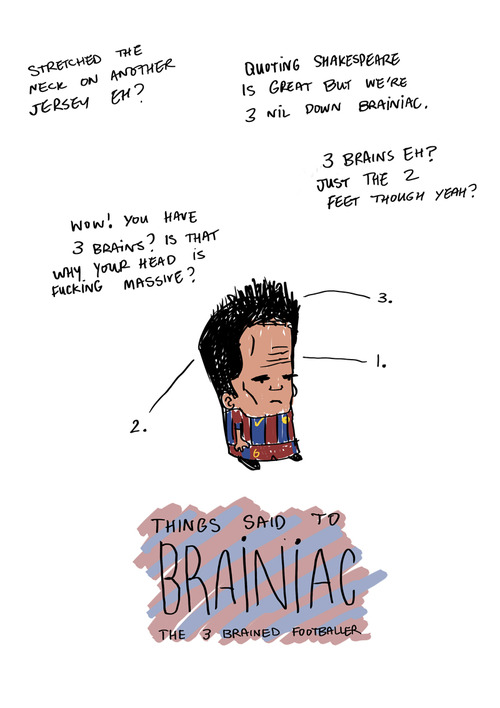 STRETCHED THE
NECK ON ANOTHER
JERSEY EH?
QUOTING SHAKESPEARE
IS GREAT BUT WE'RE
3 NIL DOWN BRAINIAC.
3 BRAINS EH?
JUST THE 2
FEET THOUGH YEAH?
WOW! YOU HAVE
3 BRAINS? IS THAT
WHY YOUR HEAD IS
FUCKING MASSIVE?
3.
1.
2.
6
THINGS SAID TO
BRAINIAC
THE 3 BRAINED FOOTBALLER